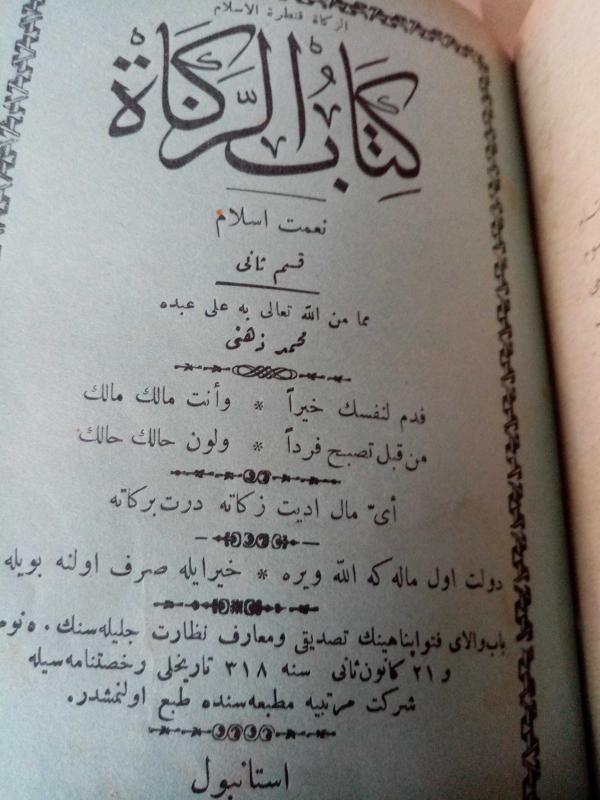 الزكاة قنطرة الاسلام
كِتَابُ الزَّكَاة
نعمت اسلام
قسم ثانى
مما من الله تعالى به على عبده
محمد ذهنى
قدم لنفسك خيراً * وأنت مالك مالك
من قبل تصبح فرداً * ولون حالك حالك
أىّ مال اديت زكاته درت بركاته
دولت اول ماله كه الله ويره * خيرايله صرف اولنه بويله
باب والاى فتواپناهينك تصديقى ومعارف نظارت جليله سنك ٥٠
و ٢١ كانون ثانى سنه ٣١٨ تاريخلى رخصتنامه سيله
شركت مرتبيه مطبعه سنده طبع اولنمشدر.
استانبول